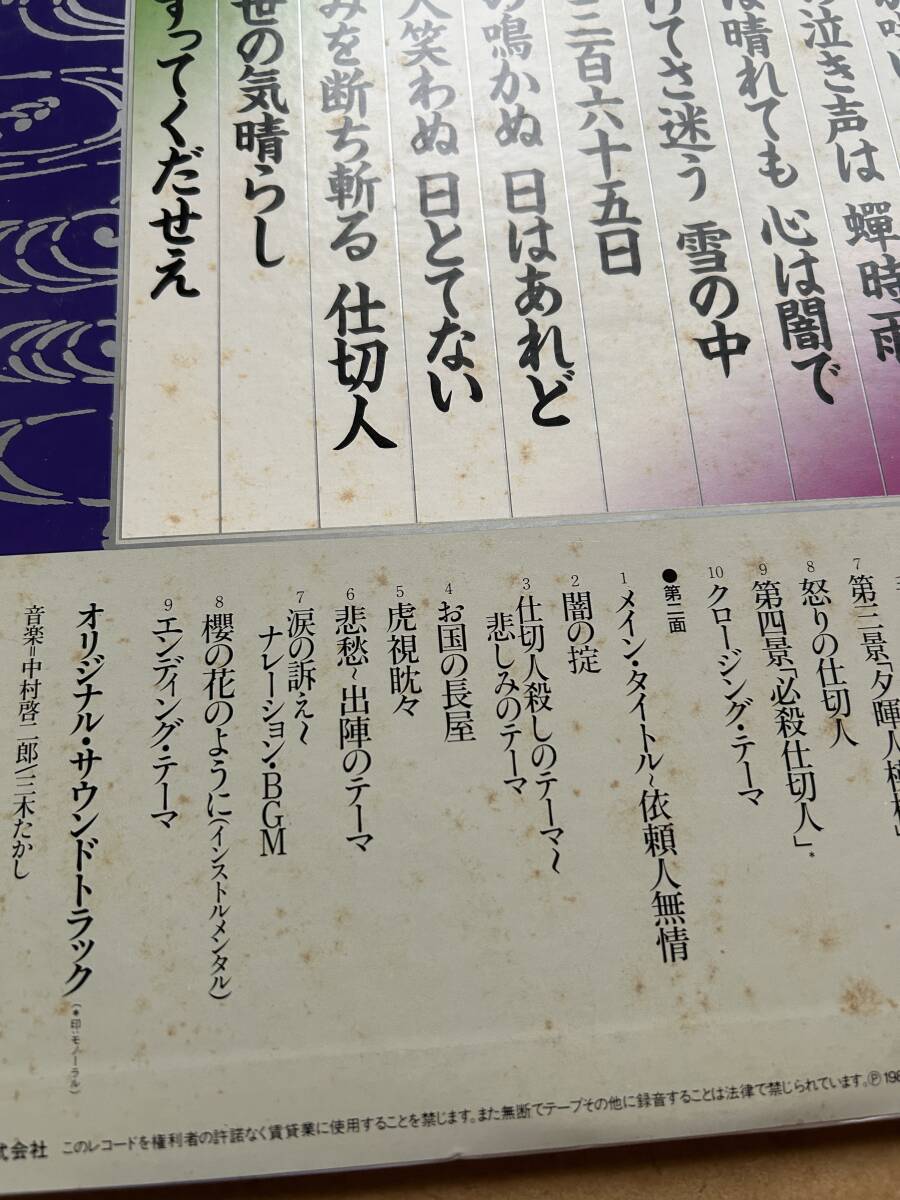 泣き声は 蟬時雨
は晴れても 心は闇で
けてさ迷う 雪の中
三百六十五日
の鳴かぬ 日はあれど
人笑わぬ 日とてない
みを断ち斬る 仕切人
世の気晴らし
すってくだせえ
7
8 怒りの仕切人
9 第四景「必殺仕切人」*
10 クロージング・テーマ
●第二面
1 メイン・タイトル〜依頼人無情
2 闇の掟
3 仕切人殺しのテーマ〜
悲しみのテーマ
4 お国の長屋
5 虎視眈々
6 悲愁〜出陣のテーマ
7 涙の訴え〜
ナレーション・BGM
8 櫻の花のように(インストルメンタル)
9 エンディング・テーマ
オリジナル・サウンドトラック(*印:モノーラル)
音楽=中村啓二郎/三木たかし
式会社 このレコードを権利者の許諾なく賃貸業に使用することを禁じます。また無断でテープその他に録音することは法律で禁じられています。Ⓟ198